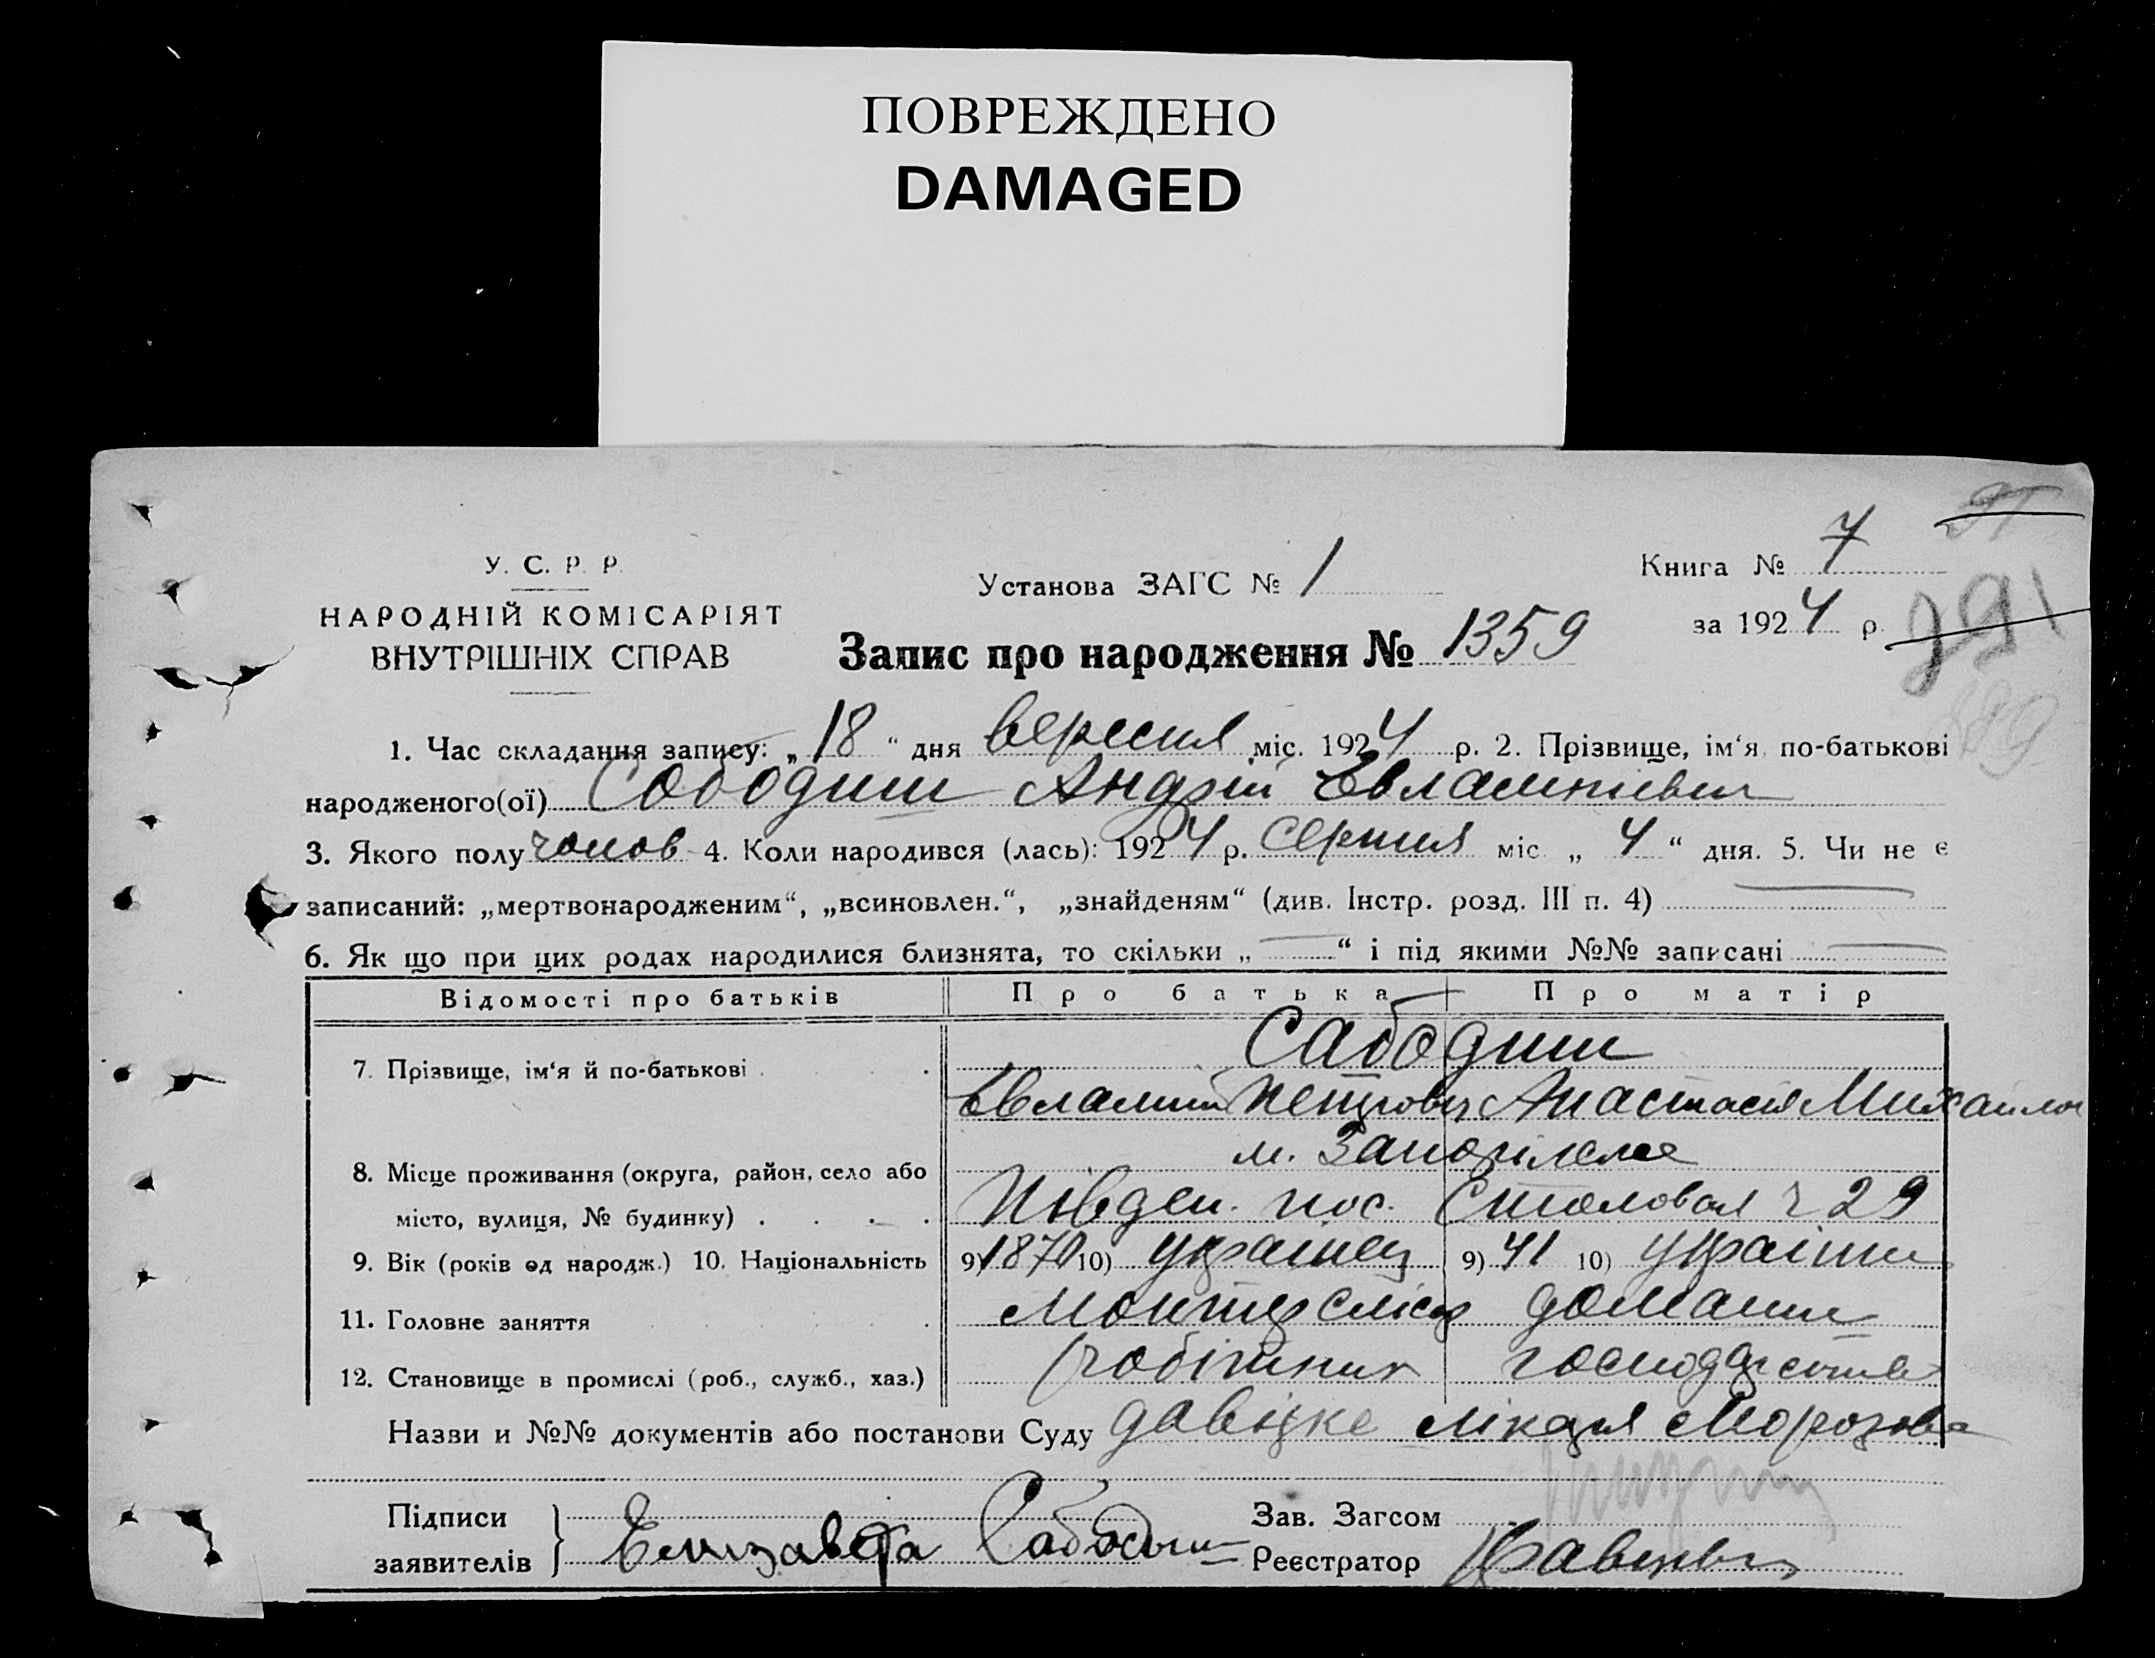 ПОВРЕЖДЕНО
DAMAGED
У. С. Р. Р.
НАРОДНІЙ КОМІСАРІЯТ
ВНУТРІШНІХ СПРАВ
Установа ЗАГС № 1
Запис про народження № 1359
Книга № 7
за 1924 р.
291
1. Час складання запису: „18“ дня вересня міс. 1924 р. 2. Прізвище, ім‘я по-батькові
народженого(ої) Сободиш Андрій Евлампіевич
3. Якого полу чолов 4. Коли народився (лась): 1924 р. серпня міс „4“ дня. 5. Чи не є
записаний: „мертвонародженим“, „всиновлен.“, „знайденям“ (див. Інстр. розд. III п. 4)
6. Як що при цих родах народилися близнята, то скільки „ “ і під якими №№ записані
Відомості про батьків Про батька Про матір
7. Прізвище, ім‘я й по-батькові Сабодиш
Евлампий Петрович Анастасія Михайлов
8. Місце проживання (округа, район, село або м. Запоріжже
місто, вулиця, № будинку) Півден. пос. Столовая 29
9. Вік (років од народж.) 10. Національність 9) 1870 10) украінец 9) 41 10) украінк
11. Головне заняття Монтер слісар домашн
12. Становище в промислі (роб., служб., хаз.) робітник господарство
Назви и №№ документів або постанови Суду довідка лікаря Морозова
Підписи
заявителів } Елизавета Сабодиш
Зав. Загсом
Реєстратор